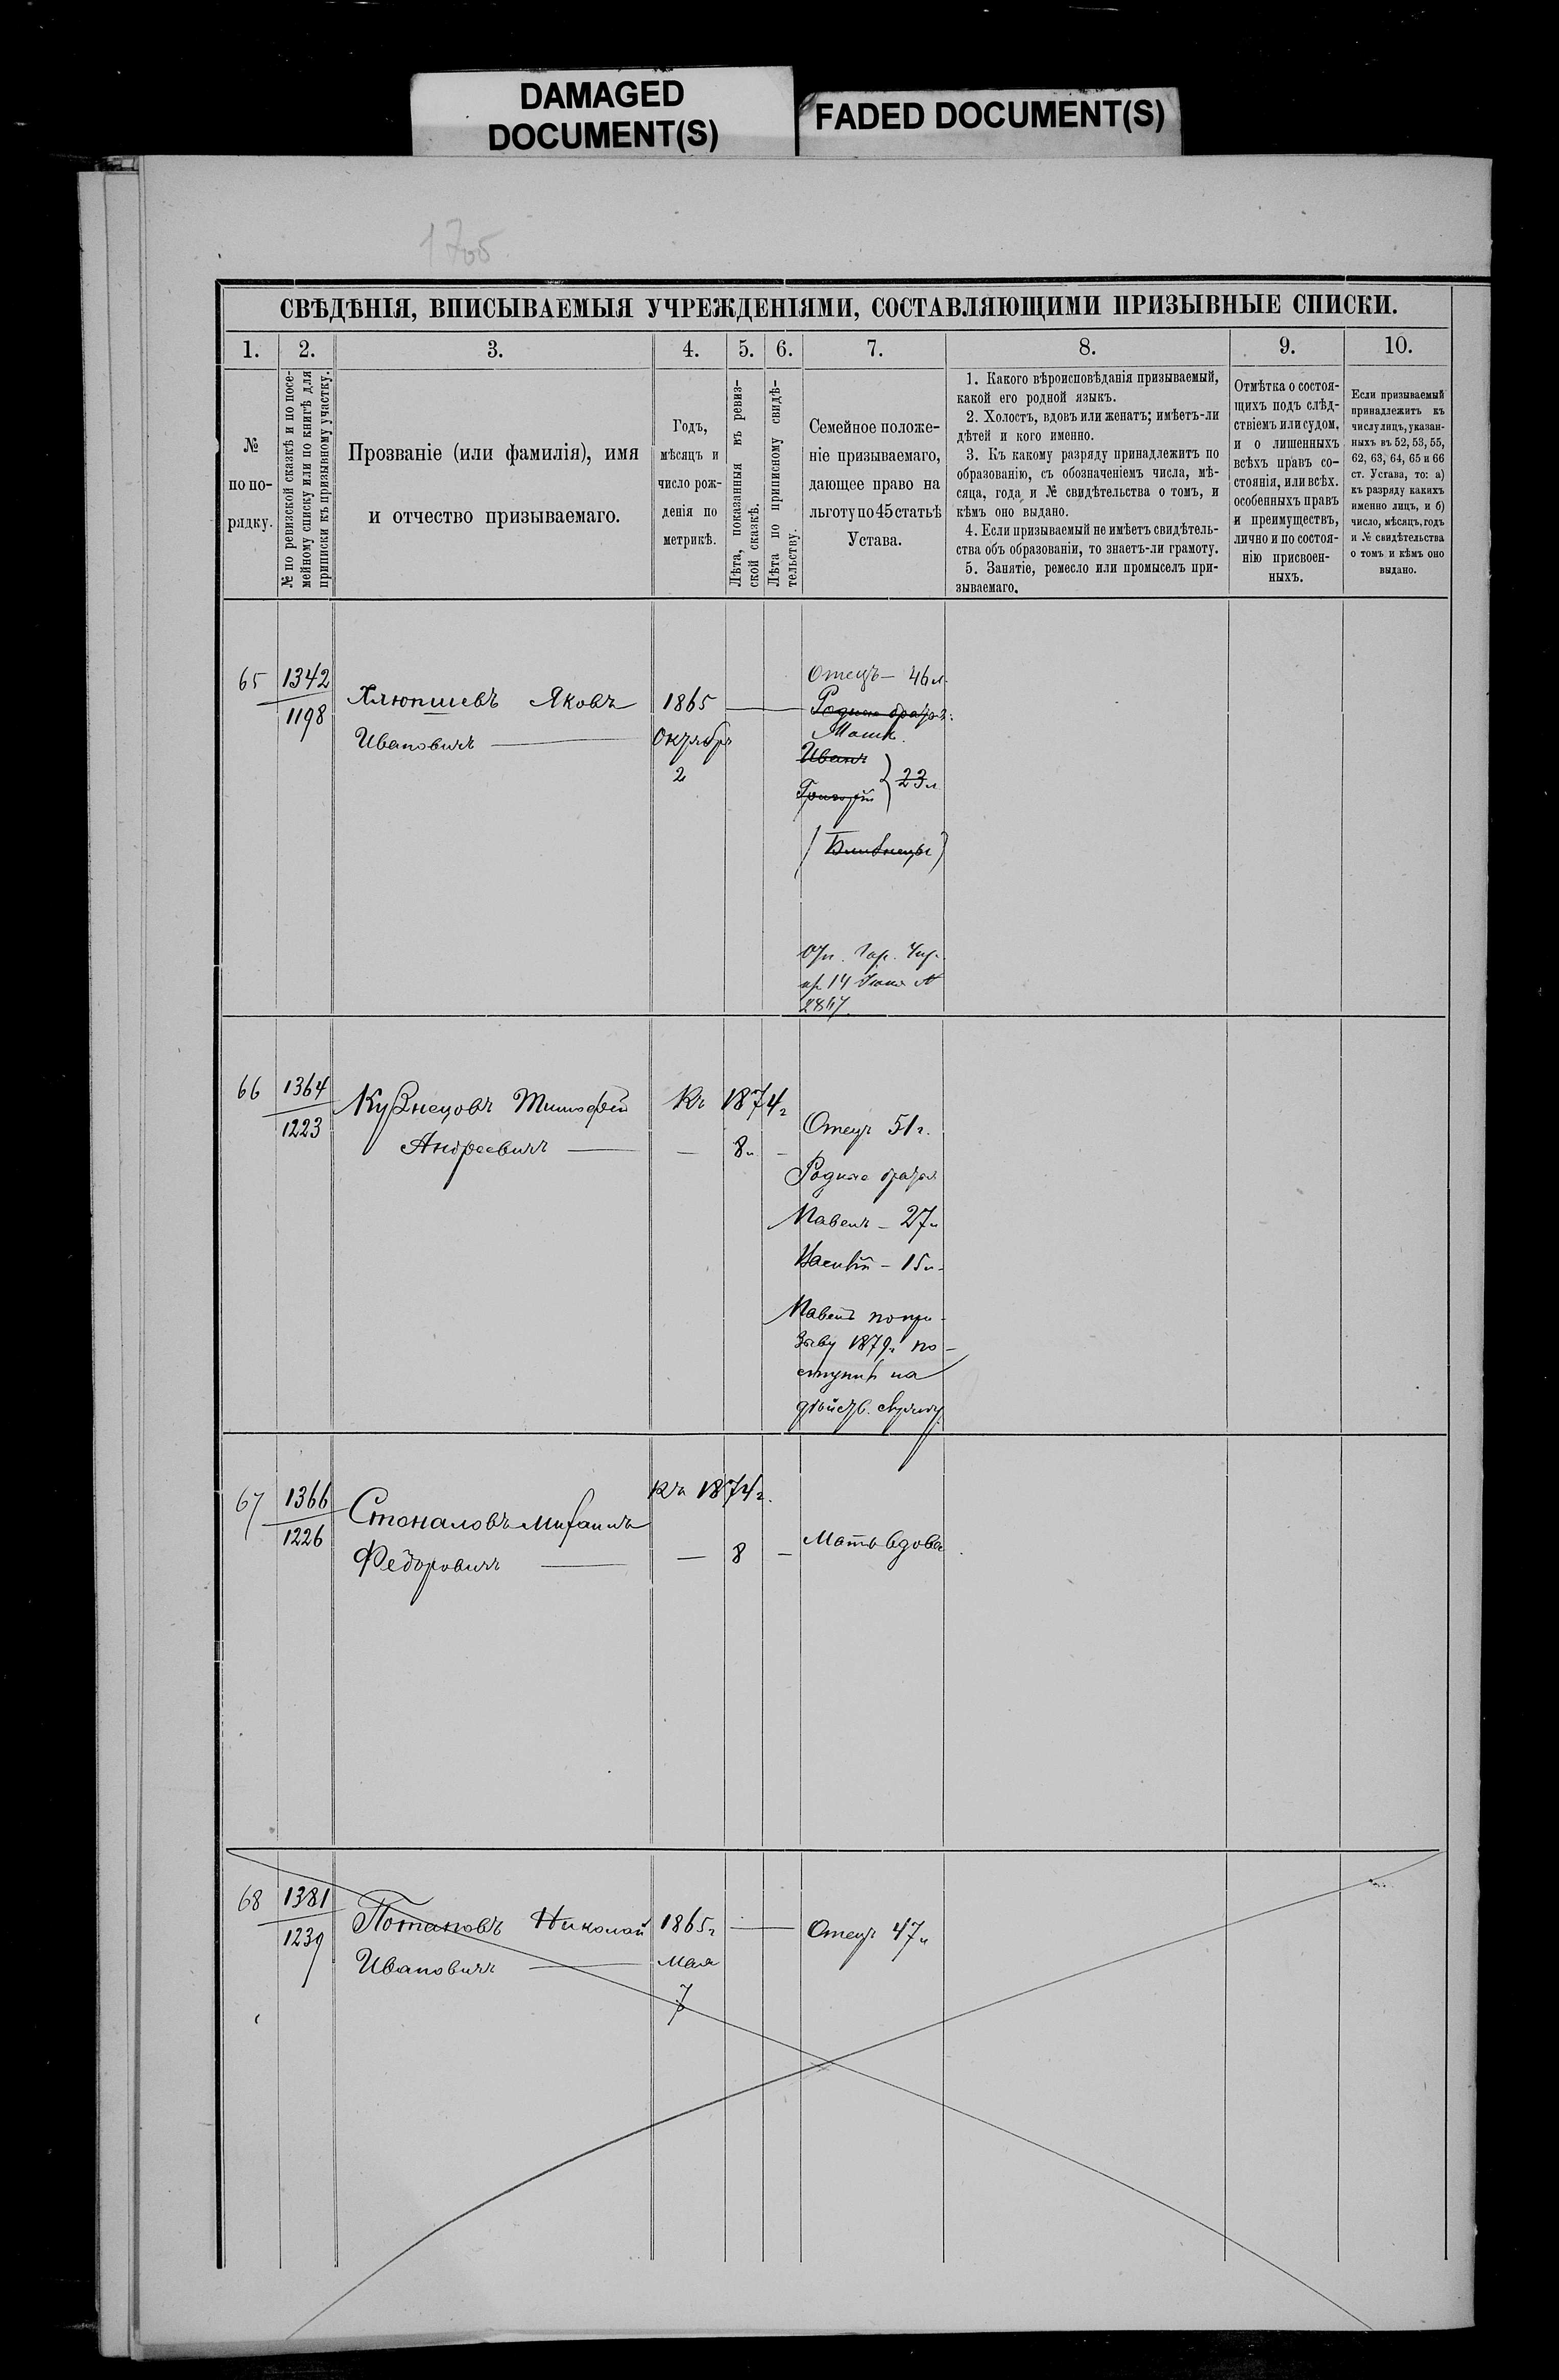 DAMAGED
DOCUMENT(S)
FADED DOCUMENT(S)
1705
СВѢДѢНІЯ, ВПИСЫВАЕМЫЯ УЧРЕЖДЕНІЯМИ, СОСТАВЛЯЮЩИМИ ПРИЗЫВНЫЕ СПИСКИ.
1.
2.
3.
4.
5.
6.
7.
8.
9.
10.
№
по по-
рядку.
№ по ревизской сказкѣ и по посе-
мейному списку или по книгѣ для
приписки къ призывному участку.
Прозваніе (или фамилія), имя
и отчество призываемаго.
Годъ,
мѣсяцъ и
число рож-
денія по
метрикѣ.
Лѣта, показанныя въ ревиз-
ской сказкѣ.
Лѣта по приписному свидѣ-
тельству.
Семейное положе-
ніе призываемаго,
дающее право на
льготу по 45 статьѣ
Устава.
1. Какого вѣроисповѣданія призываемый,
какой его родной языкъ.
2. Холостъ, вдовъ или женатъ; имѣетъ-ли
дѣтей и кого именно.
3. Къ какому разряду принадлежитъ по
образованію, съ обозначеніемъ числа, мѣ-
сяца, года и № свидѣтельства о томъ, и
кѣмъ оно выдано.
4. Если призываемый не имѣетъ свидѣтель-
ства объ образованіи, то знаетъ-ли грамоту.
5. Занятіе, ремесло или промыселъ при-
зываемаго.
Отмѣтка о состоя-
щихъ подъ слѣд-
ствіемъ или судом,
и о лишенныхъ
всѣхъ правъ со-
стоянія, или всѣх.
особенныхъ правъ
и преимуществъ,
лично и по состоя-
нію присвоен-
ныхъ.
Если призываемый
принадлежитъ къ
числу лицъ, указан-
ныхъ въ 52, 53, 55,
62, 63, 64, 65 и 66
ст. Устава, то: а)
къ разряду какихъ
именно лицъ, и б)
число, мѣсяцъ, годъ
и № свидѣтельства
о томъ и кѣмъ оно
выдано.
65
1342
1198
Хлюпшевъ Яковъ
Ивановичъ
1865
Октября
2
Отецъ — 46 л.
Родные братья:
Иванъ
Григорій } 23 л
(Близнецы)
пр. 14 Іюня №
2847.
66
1364
1223
Кузнецовъ Тимофей
Андреевичъ
Къ 1874 г
— 8 л —
Отецъ 51 г.
Родные братья
Павелъ — 27 л
Василій — 15 л.
Павелъ по при-
зыву 1879 г. по-
ступилъ на
дѣйств. службу.
67
1366
1226
Стоналовъ Михаилъ
Федоровичъ
Къ 1874 г.
— 8 —
Мать вдова
68
1381
1239
Потаповъ Николай
Ивановичъ
1865 г
Мая
7
Отецъ 47 л